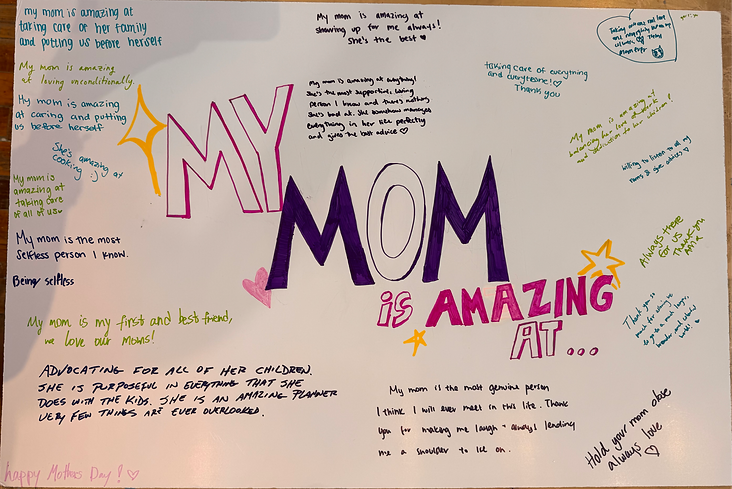 my mom is amazing at
taking care of her family
and putting us before herself
My mom is amazing
at loving unconditionally.
My mom is amazing
at caring and putting
us before herself
She's amazing at
cooking :)
My mom is
amazing at
taking care
of all of us
My mom is the most
selfless person I know.
Being selfless
My mom is my first and best friend,
we love our moms!
ADVOCATING FOR ALL OF HER CHILDREN.
SHE IS PURPOSEFUL IN EVERYTHING THAT SHE
DOES WITH THE KIDS. SHE IS AN AMAZING PLANNER
VERY FEW THINGS ARE EVER OVERLOOKED.
happy Mothers Day! ♡
My mom is amazing at
showing up for me always!
She's the best
My mom is amazing at everything!
She's the most supportive, loving
person I know and there's nothing
she's bad at. She somehow manages
everything in her life perfectly
and gives the best advice ♡
MY
MOM
is AMAZING
AT...
taking care of everything
and everyone! ♡
Thank you
My mom is amazing at
balancing her love of work
and dedication to her children!
willing to listen to all my
Always there
for us
Thank you
Thank you so
much for
My mom is the most genuine person
I think I will ever meet in this life. Thank
you for making me laugh + always lending
me a shoulder to lie on.
Hold your mom close
always love
♡